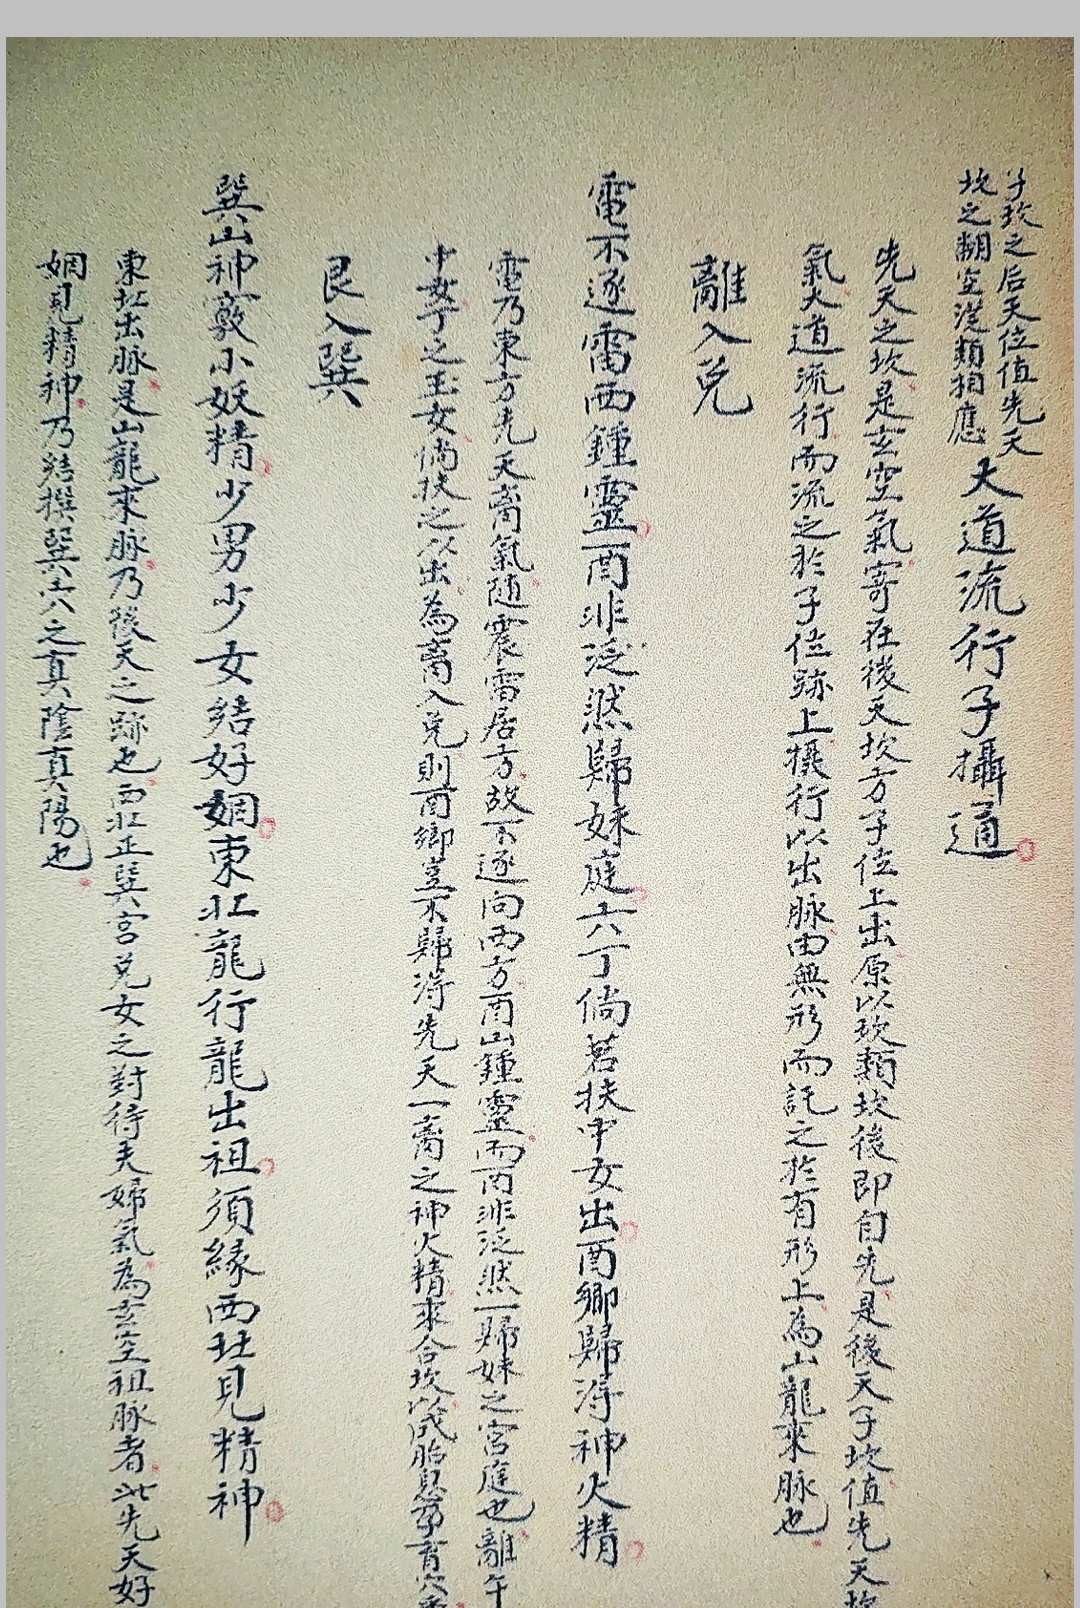 子坎之后天位值先天
坎之翻空從類相應
大道流行子攝通
先天之坎是玄空氣寄在後天坎方子位上出原以坎類坎後即自先是後天子坎值先天坎
氣大道流行而流之於子位跡上攝行以出脉由無形而託之於有形上為山龍來脉也
離入兌
電不逐雷西鍾靈酉非泛然歸妹庭六丁倘若扶中女出酉鄉歸得神火精
電乃東方先天离氣随震雷居方故不逐向西方酉山鍾靈而酉非泛然一歸妹之宮庭也離午
中女丁之玉女倘扶之以出為离入兌則酉鄉豈不歸得先天一离之神火精來合坎以成胎息孕育穴
艮入巽
巽山神竅小妖精少男少女結好姻東北龍行龍出祖須緣西北見精神
東北出脉是山龍來脉乃後天之跡也西北正巽宮兌女之對待夫婦氣為玄空祖脉者此先天好
姻見精神乃結撰巽穴之真陰真陽也